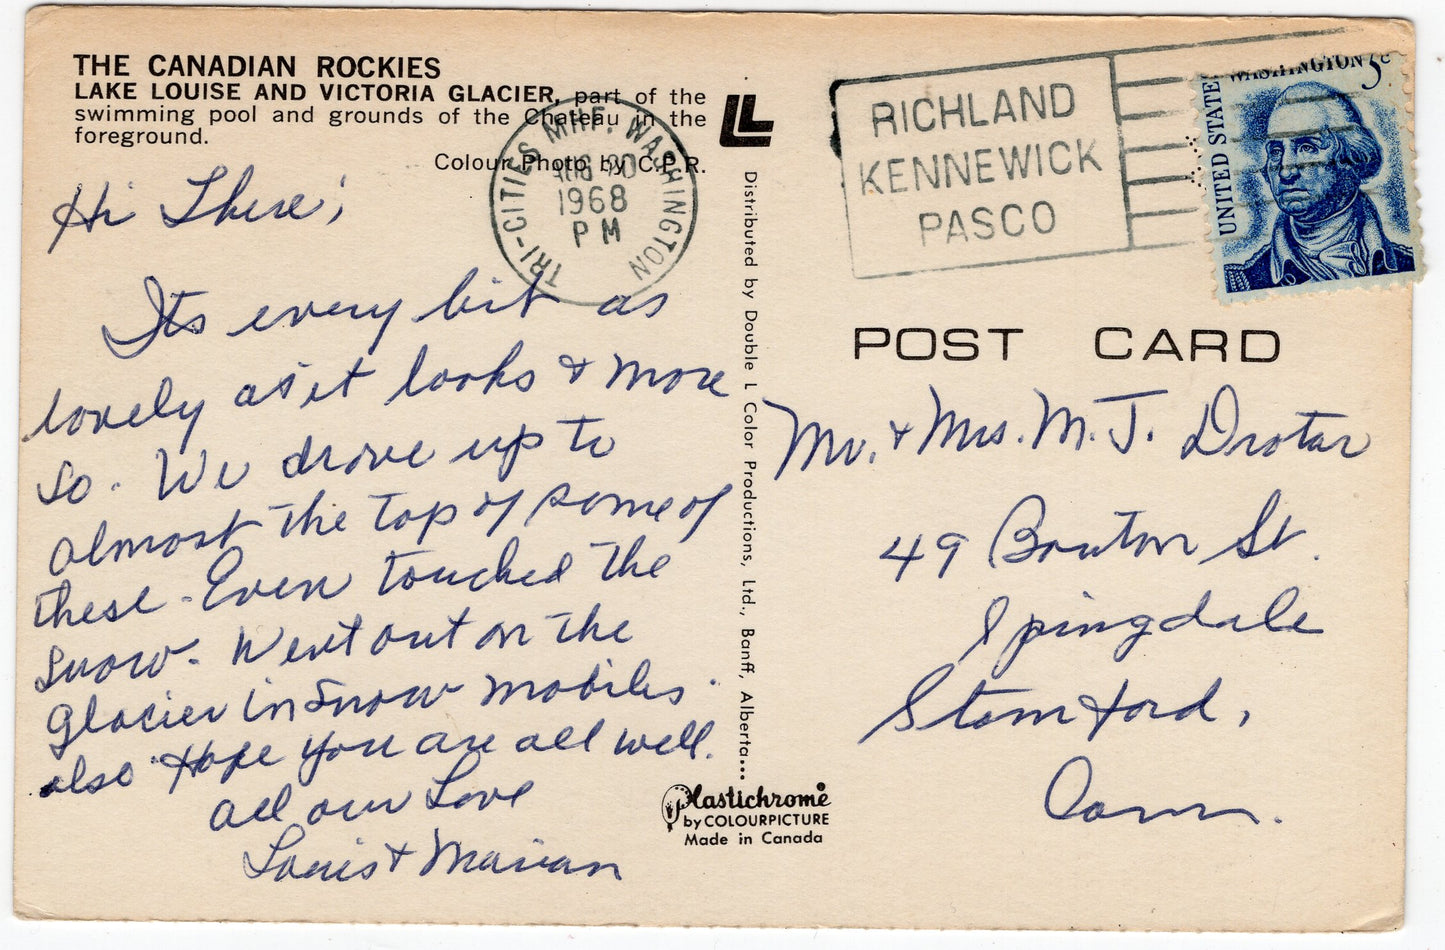 THE CANADIAN ROCKIES
LAKE LOUISE AND VICTORIA GLACIER, part of the
swimming pool and grounds of the Chateau in the
foreground.
Colour Photo by C.P.R.
Hi There;
Its every bit as
lovely as it looks & more
so. We drove up to
almost the top of some of
these. Even touched the
snow. Went out on the
glacier in snow mobiles
also. Hope you are all well.
All our Love
Louis & Marian
TRI-CITIES MPF. WASHINGTON
1968
PM
LL
Distributed by Double L Color Productions, Ltd., Banff, Alberta...
Plastichrome
by COLOURPICTURE
Made in Canada
RICHLAND
KENNEWICK
PASCO
UNITED STATES
WASHINGTON 5c
POST CARD
Mr. & Mrs. M. J. Drotar
49 Bouton St.
Springdale
Stamford,
Conn.